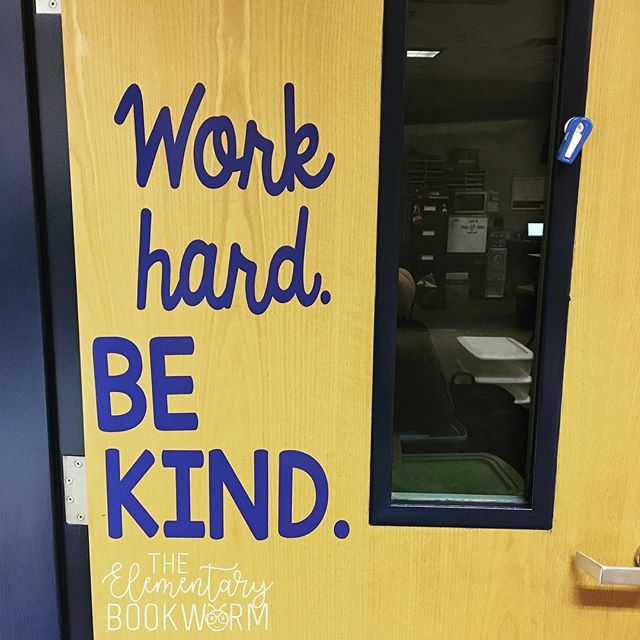 Work
hard.
BE
KIND.
THE
Elementary
BOOKWORM